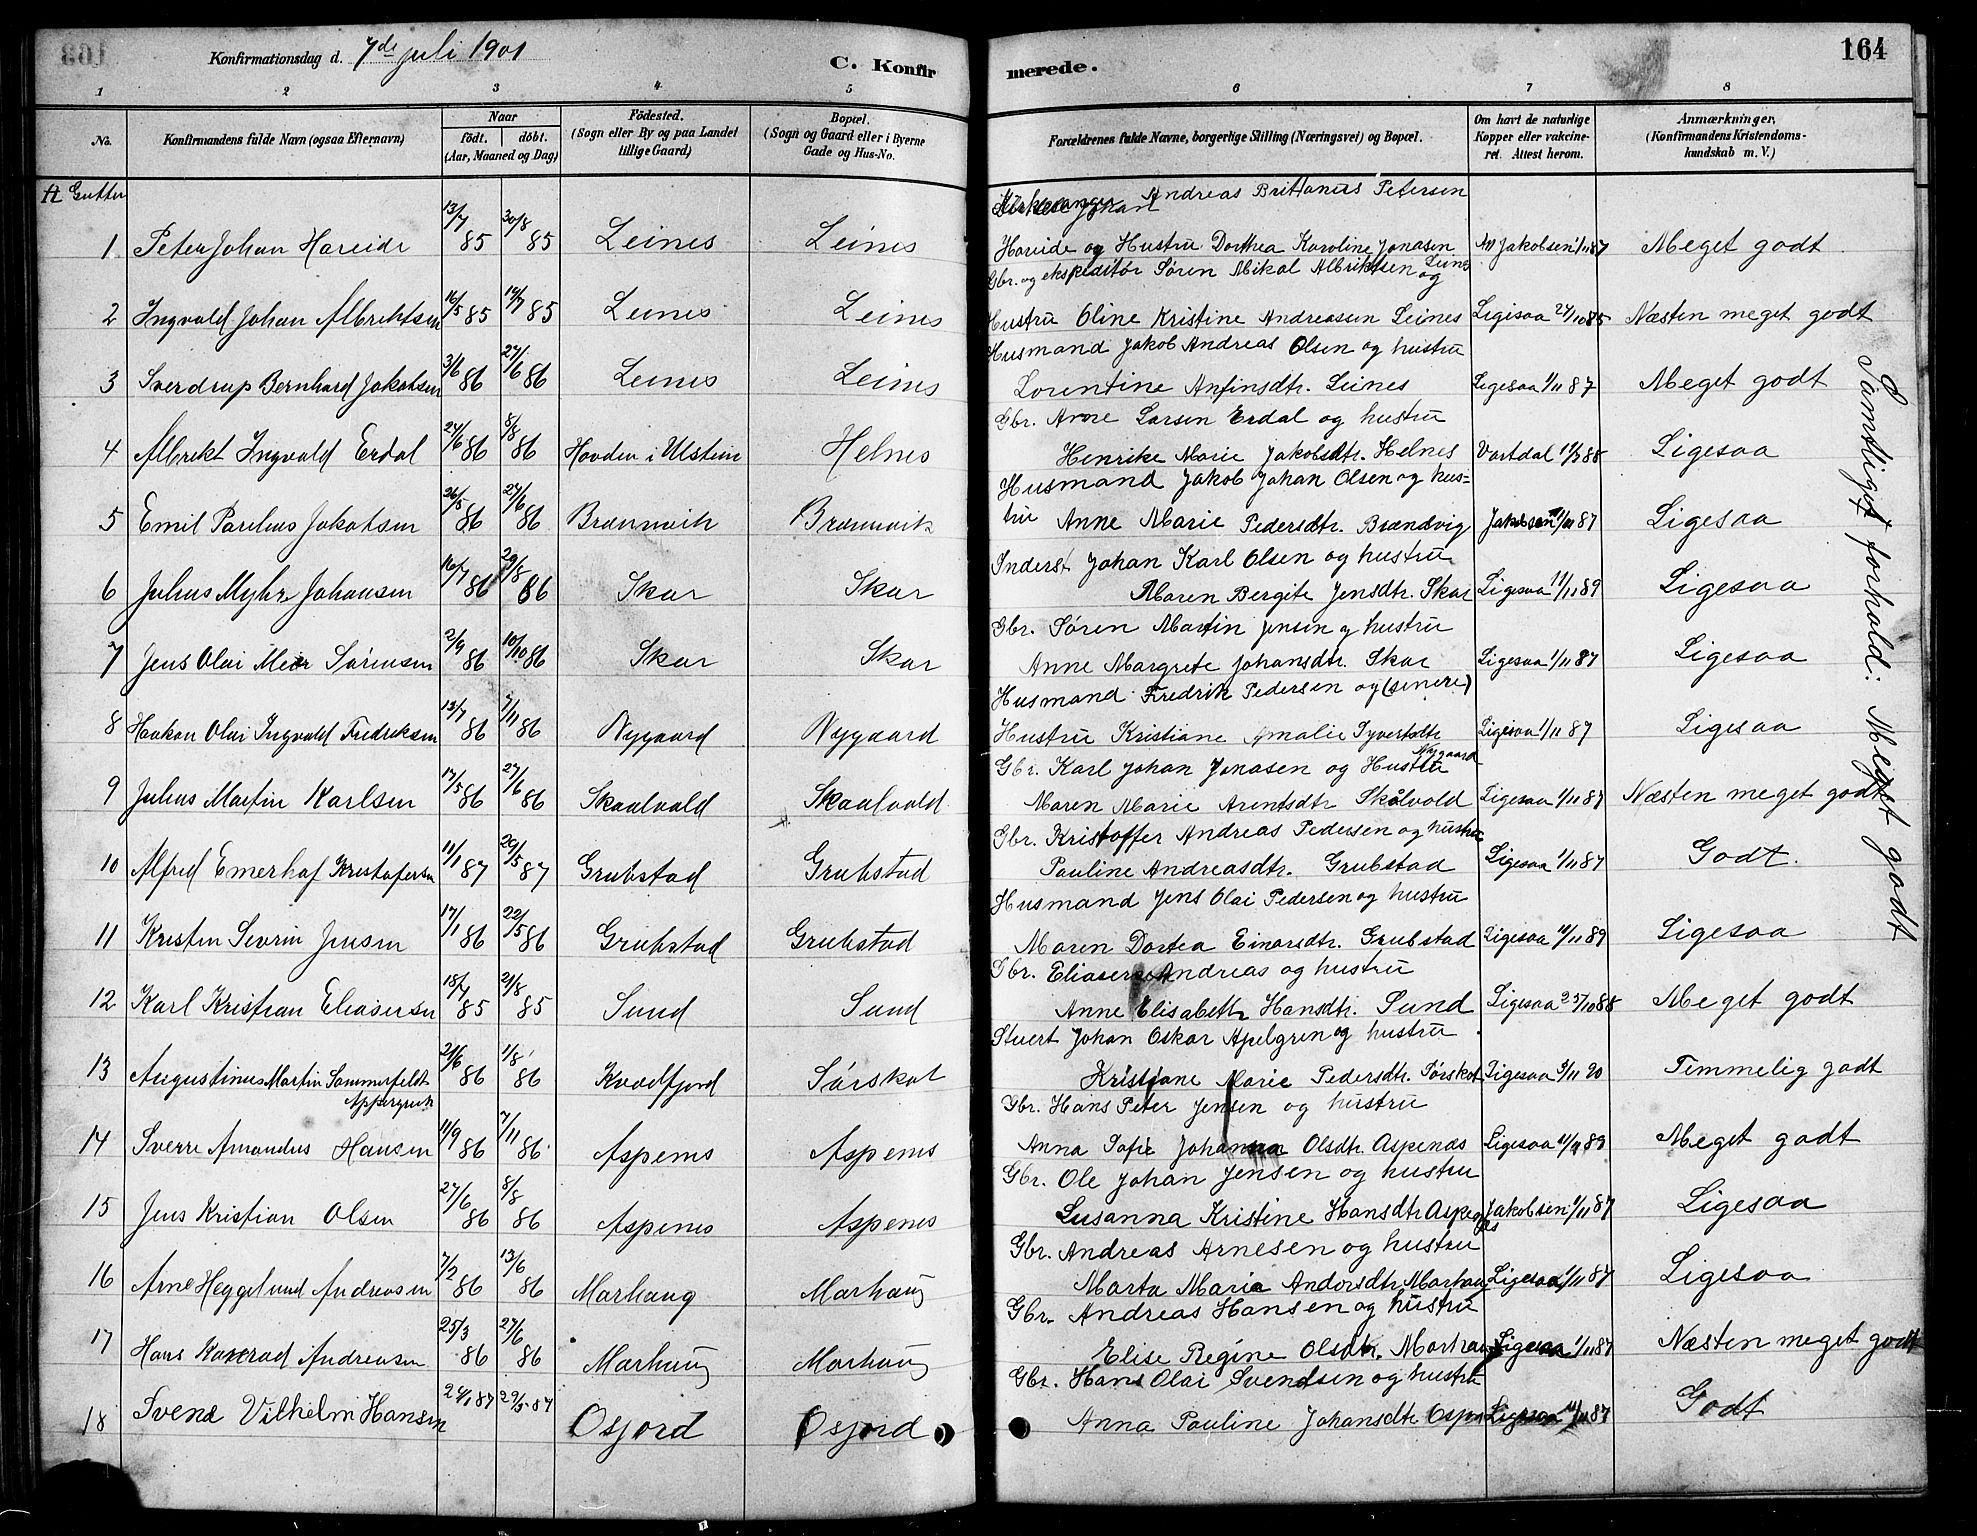 Konfirmationsdag d. 7de juli 1901
C. Konfirmerede.
164
1 2 3 4 5 6 7 8
No.
Konfirmandens fulde Navn (ogsaa Efternavn)
Naar
födt. döbt.
(Aar, Maaned og Dag)
Födested.
(Sogn eller By og paa Landet
tillige Gaard)
Bopæl.
(Sogn og Gaard eller i Byerne
Gade og Hus-No.
Forældrenes fulde Navne, borgerlige Stilling (Næringsvei) og Bopæl.
Om havt de naturlige
Kopper eller vakcine-
ret. Attest herom.
Anmærkninger,
(Konfirmandens Kristendoms-
kundskab m. V.)
Gutter
Kirkesanger Andreas Brittanus Petersen
1 Peter Johan Hareide 13/7 85 30/8 85 Leines Leines Hareide og Hustru Dorthea Karoline Jonasen Jakobsen 1/11 87 Meget godt
Gbr. og ekspeditör Sören Mikal Albriktsen Leines og
2 Ingvald Johan Albrektsen 16/5 85 19/7 85 Leines Leines Hustru Oline Kristine Andreasen Leines Ligesaa 27/10 85 Næsten meget godt
Husmand Jakob Andreas Olsen og hustru
3 Sverdrup Bernhard Jakobsen 3/6 86 27/6 86 Leines Leines Lorentine Anfinsdtr. Leines Ligesaa 1/11 87 Meget godt
Gbr. Arne Larsen Erdal og hustru
4 Albrekt Ingvald Erdal 24/6 86 8/8 86 Hovden i Ulstein Helnes Henrike Marie Jakobsdtr. Helnes Vartdal Ligesaa
Husmand Jakob Johan Olsen og hus-
5 Emil Paulus Jakobsen 26/5 86 27/6 86 Brannvik Brannvik tru Anne Marie Pedersdtr. Brændvig Jakobsen 1/11 87 Ligesaa
Inderst Johan Karl Olsen og hustru
6 Julius Myhre Johansen 16/7 86 29/8 86 Skar Skar Maren Bergite Jensdtr. Skar Ligesaa 11/11 89 Ligesaa
Gbr. Sören Martin Jensen og hustru
7 Jens Olai Meier Sörensen 2/9 86 10/10 86 Skar Skar Anne Margrete Johansdtr. Skar Ligesaa 1/11 87 Ligesaa
Husmand Fredrik Pedersen og (senere)
8 Haakon Olai Ingvald Fredriksen 13/7 86 7/11 86 Nygaard Nygaard Hustru Kristiane Amalie Syvertsdtr Nygaard Ligesaa 1/11 87 Ligesaa
Gbr. Karl Johan Jonasen og Hustru
9 Julius Martin Karlsen 17/5 86 27/6 86 Skaalvold Skaalvold Maren Marie Arentsdtr Skålvold Ligesaa 1/11 87 Næsten meget godt
Gbr. Kristoffer Andreas Pedersen og hustru
10 Alfred Emerhof Kristofersen 11/1 87 20/5 87 Grubstad Grubstad Pauline Andreasdtr. Grubstad Ligesaa 1/11 87 Godt.
Husmand Jens Olai Pedersen og hustru
11 Kristen Sevrin Jensen 17/1 86 22/5 86 Grubstad Grubstad Maren Dortea Einarsdtr. Grubstad Ligesaa 11/11 89 Ligesaa
Gbr. Eliasersen Andreas og hustru
12 Karl Kristian Eliasersen 18/7 85 21/8 85 Sund Sund Anne Elisabeth Hansdtr. Sund Ligesaa 25/10 88 Meget godt
Stuert Johan Oskar Apelgren og hustru
13 Augustinus Martin Sommerfeldt 21/6 86 1/8 86 Kvædfjord Sörskot Kristiane Marie Pedersdtr. Sörskot Ligesaa Temmelig godt
Gbr. Hans Peter Jensen og hustru
14 Sverre Amandus Hansen 11/9 86 7/11 86 Aspenes Aspenes Anna Sofie Johanna Olsdtr. Aspenæs Ligesaa Meget godt
Gbr. Ole Johan Jensen og hustru
15 Jens Kristian Olsen 27/6 86 8/8 86 Aspenes Aspenes Susanna Kristine Hansdtr Aspenæs Jakobsen 1/11 87 Ligesaa
Gbr. Andreas Arnesen og hustru
16 Arne Heggelund Andreasen 7/2 86 13/6 86 Marhaug Marhaug Marta Maria Andorsdtr Marhaug Ligesaa 1/11 87 Ligesaa
Gbr. Andreas Hansen og hustru
17 Hans Konrad Andreasen 25/3 86 27/6 86 Marhaug Marhaug Elise Regine Olsdtr. Marhaug Ligesaa 1/11 87 Næsten meget godt
Gbr. Hans Olai Svendsen og hustru
18 Svend Vilhelm Hansen 24/1 87 29/5 87 Osjord Osjord Anna Pauline Johansdtr Ligesaa 11/11 87 Godt
Samtliges forhold: Meget godt